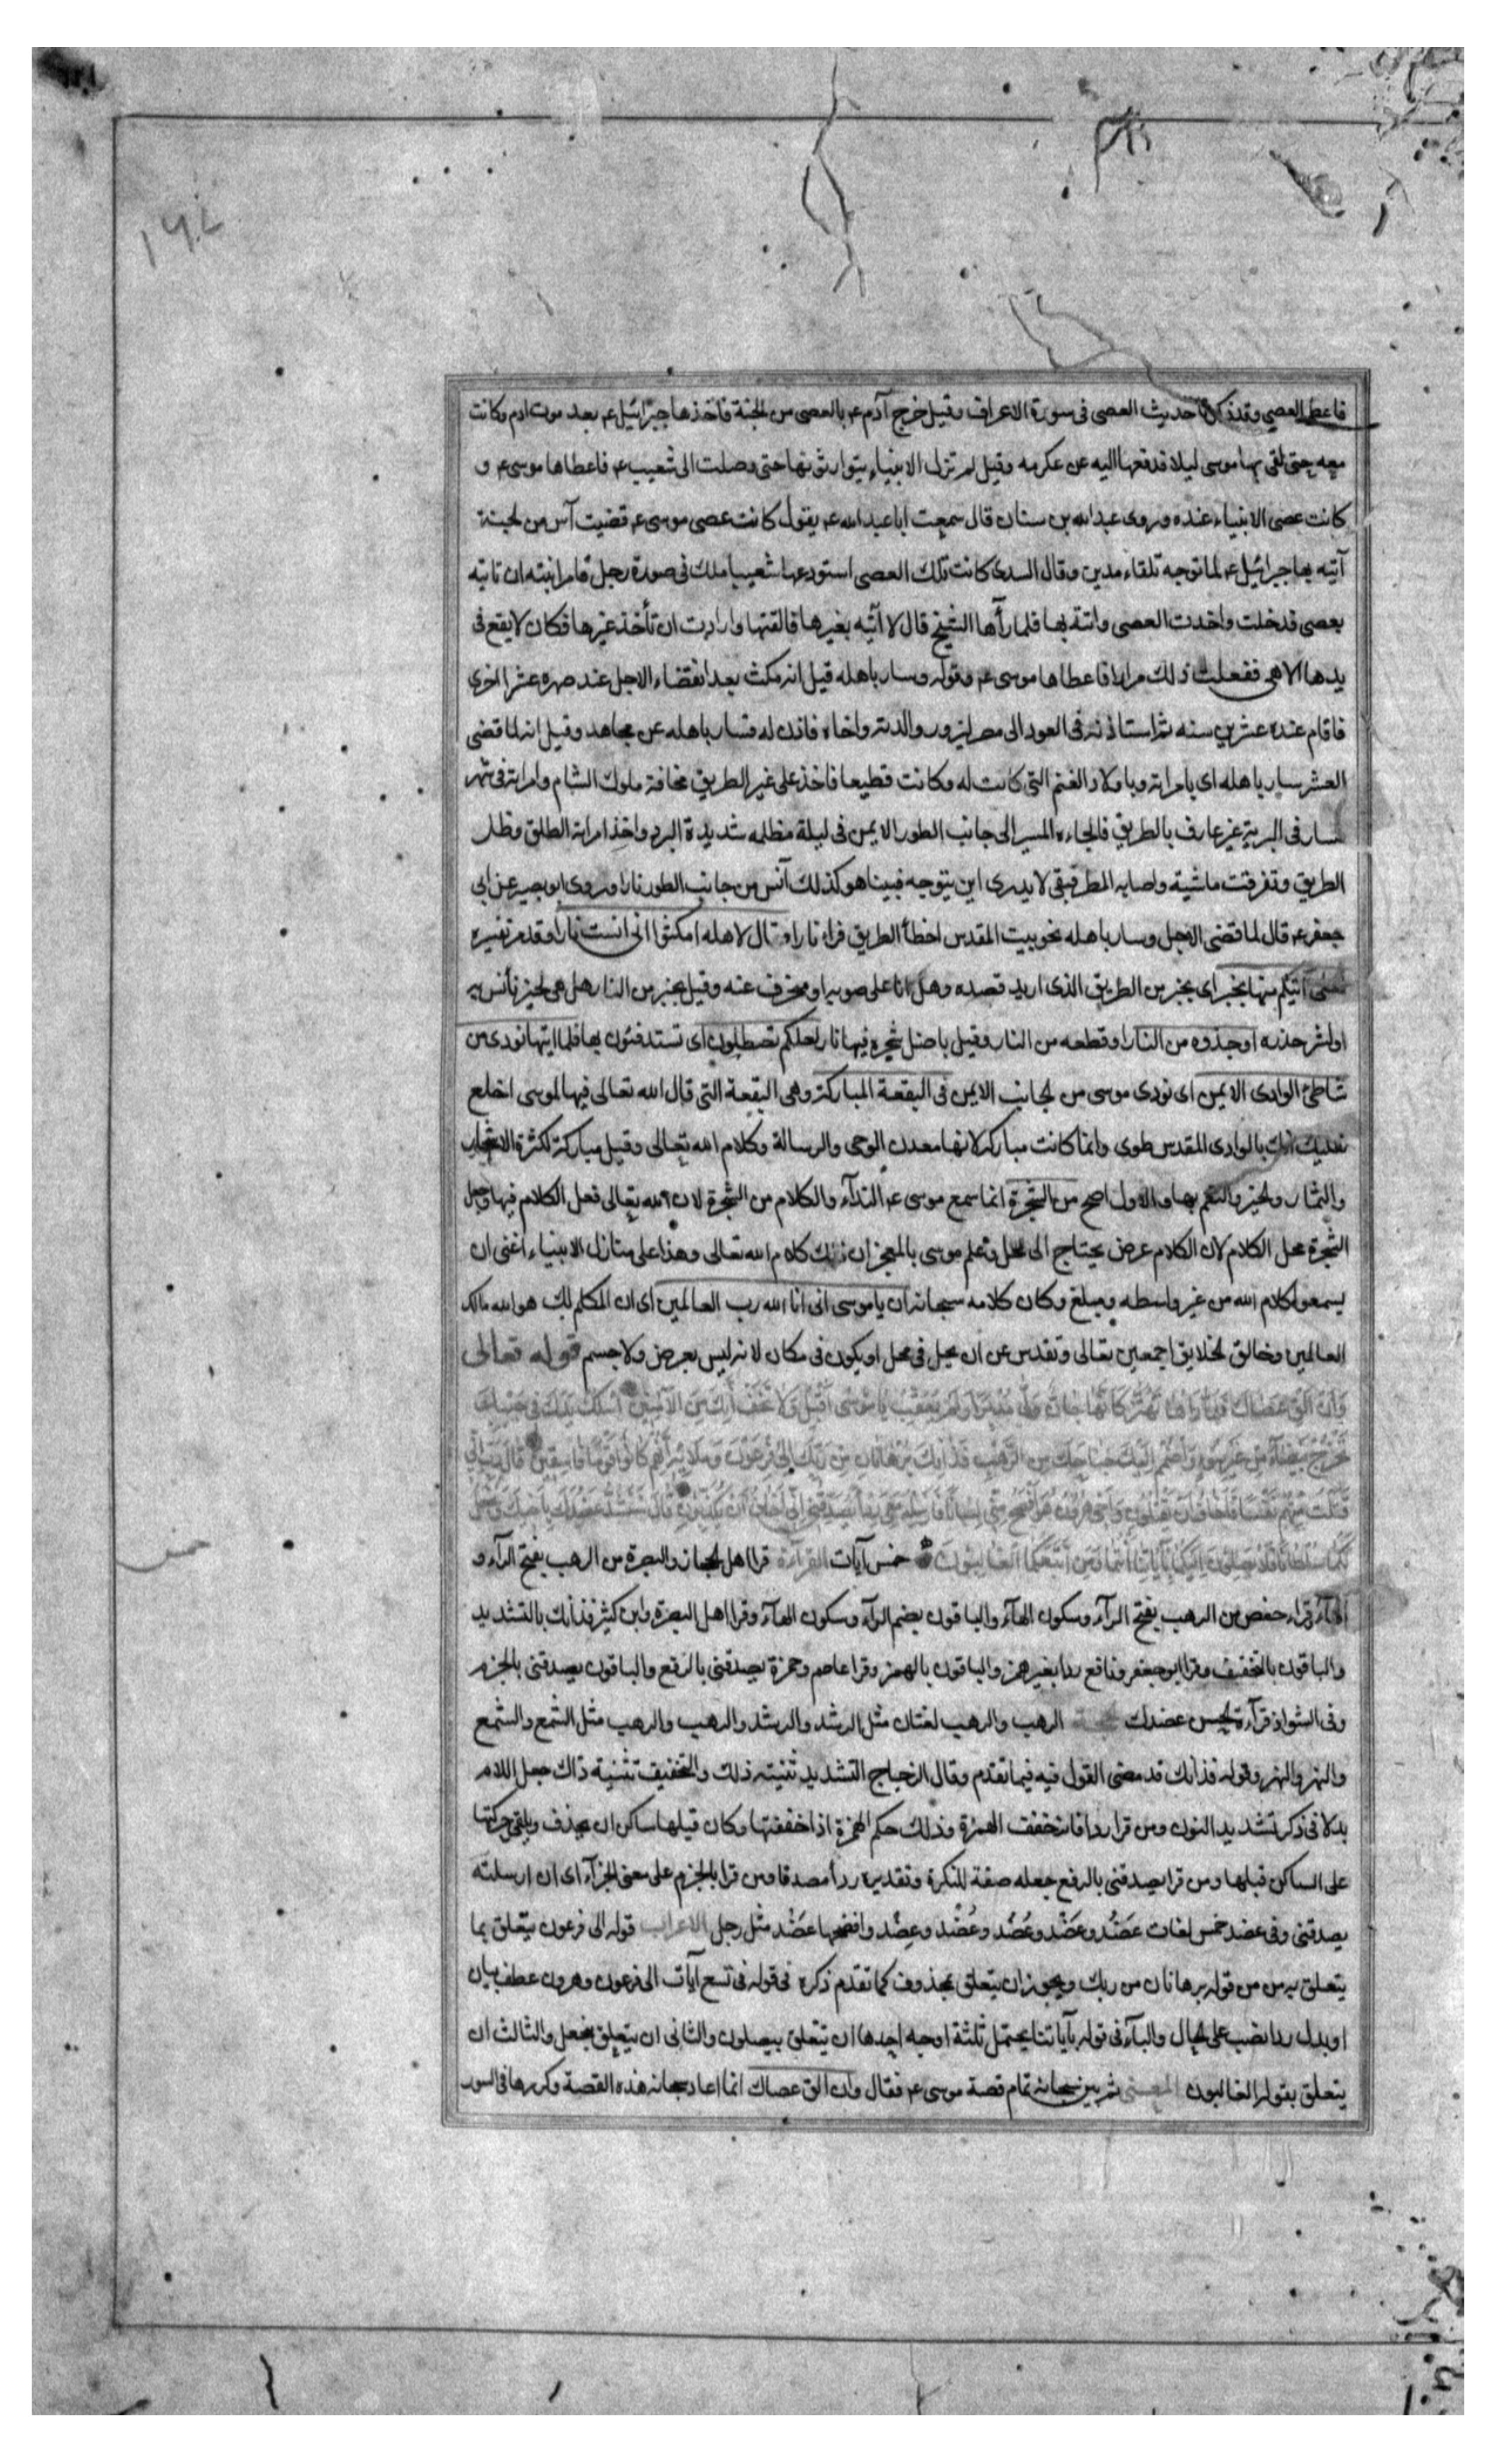 ١٩٤
فاعطى العصى وقد ذكرنا حديث العصى فى سورة الاعراف وقيل خرج آدم ع بالعصى من الجنة فاخذها جبرائيل ع بعد موت ادم وكانت
معه حتى لقى بها موسى ليلا فدفعها اليه عن عكرمه وقيل لم تزل الانبياء يتوارثونها حتى وصلت الى شعيب ع فاعطاها موسى ع و
كانت عصى الانبياء عنده وروى عبدالله بن سنان قال سمعت ابا عبدالله ع يقول كانت عصى موسى ع قضيت آس من لجنة
آتيه بها جبرائيل ع لما توجه تلقاء مدين وقال السدى كانت تلك العصى استودعها شعيبا ملك فى صورة رجل فامر ابنته ان تاتيه
بعصى فدخلت واخذت العصى واتته بها فلما رآها الشيخ قال لا آتيه بغيرها فالقتها وارادت ان تأخذ غيرها فكان لا يقع فى
يدها الا هى ففعلت ذلك مرارا فاعطاها موسى ع وقوله وسار باهله قيل انه مكث بعد انقضاء الاجل عند صهره عشرا اخرى
فاقام عنده عشرين سنه ثم استاذنه فى العود الى مصر ليزور والدته واخاه فاذن له فسار باهله عن مجاهد وقيل انه لما قضى
العشر سار باهله اى بامراته وباولاد الغنم التى كانت له وكانت قطيعا فاخذ على غير الطريق مخافة ملوك الشام وامراته فى شهر
فسار فى البرية غير عارف بالطريق فالجاءه المسير الى جانب الطور الايمن فى ليلة مظلمه شديدة البرد واخذ امراته الطلق وظل
الطريق وتفرقت ماشيته واصابه المطر فبقى لا يدرى اين يتوجه فبينا هو كذلك آنس من جانب الطور نارا وروى ابو بصير عن ابى
جعفر ع قال لما قضى الاجل وسار باهله نحو بيت المقدس اخطأ الطريق فراء نارا وقال لاهله امكثوا انى انست نارا وقدم تفسيره
لعلى آتيكم منها بخبر اى بخبر من الطريق الذى اريد قصده وهل انا على صوبه او منحرف عنه وقيل بخبر من النار هل هى لخير نأنس به
او لشر حذره او جذوه من النار او قطعه من النار وقيل باصل شجره فيها نار لعلكم تصطلون اى تستدفئون بها فلما اتيها نودى من
شاطئ الوادى الايمن اى نودى موسى من لجانب الايمن فى البقعة المباركة وهى البقعة التى قال الله تعالى فيها لموسى اخلع
نعليك انك بالوادى المقدس طوى وانما كانت مباركه لانها معدن الوحى والرسالة وكلام الله تعالى وقيل مباركة لكثرة الاشجار
والثمار ولخير والنعم بها والاول اصح من الشجرة انما سمع موسى ع النداء والكلام من الشجرة لان الله تعالى فعل الكلام فيها وجعل
الشجرة محل الكلام لان الكلام عرض يحتاج الى محل وعلم موسى بالمعجز ان ذلك كلام الله تعالى وهذا على منازل الانبياء اغنى ان
يسمعوا كلام الله من غير واسطه ومبلغ وكان كلامه سبحانه ان يا موسى انى انا الله رب العالمين اى ان المكلم لك هو الله مالك
العالمين وخالق لخلايق اجمعين تعالى وتقدس عن ان يحل فى محل او يكون فى مكان لانه ليس بعرض ولا جسم قوله تعالى
وَاَنْ اَلْقِ عَصَاكَ فَلَمَّا رَآهَا تَهْتَزُّ كَاَنَّهَا جَانٌّ وَلّى مُدْبِرًا وَلَمْ يُعَقِّبْ يَا مُوسى اَقْبِلْ وَلَا تَخَفْ اِنَّكَ مِنَ الْآمِنِينَ اُسْلُكْ يَدَكَ فِى جَيْبِكَ
تَخْرُجْ بَيْضَآءَ مِنْ غَيْرِ سُوءٍ وَاضْمُمْ اِلَيْكَ جَنَاحَكَ مِنَ الرَّهْبِ فَذَانِكَ بُرْهَانَانِ مِنْ رَبِّكَ اِلى فِرْعَوْنَ وَمَلَائِهِ اِنَّهُمْ كَانُوا قَوْمًا فَاسِقِينَ قَالَ رَبِّ اِنِّى
قَتَلْتُ مِنْهُمْ نَفْسًا فَاَخَافُ اَنْ يَقْتُلُونِ وَاَخِى هرُونُ هُوَ اَفْصَحُ مِنِّى لِسَانًا فَاَرْسِلْهُ مَعِىَ رِدْءًا يُصَدِّقُنِى اِنِّى اَخَافُ اَنْ يُكَذِّبُونِ قَالَ سَنَشُدُّ عَضُدَكَ بِاَخِيكَ وَنَجْعَلُ
لَكُمَا سُلْطَانًا فَلَا يَصِلُونَ اِلَيْكُمَا بِآيَاتِنَا اَنْتُمَا وَمَنِ اتَّبَعَكُمَا الْغَالِبُونَ خمس آيات القرآءة قرا اهل لحجاز والبصرة من الرهب بفتح الرآء و
الهآء وقراء حفص من الرهب بفتح الرآء وسكون الهآء والباقون بضم الرآء وسكون الهآء وقرا اهل البصرة وابن كثير فذانك بالتشديد
والباقون بالتخفيف وقرا ابو جعفر ونافع ردا بغير همز والباقون بالهمز وقرا عاصم وحمزة يصدقنى بالرفع والباقون يصدقنى بالجزم
وفى الشواذ قرآءة لحسن عضدك الرهب والرهب لغتان مثل الرشد والرشد والرهب والرهب مثل الشمع والشمع
والنهر والنهر وقوله فذانك قد مضى القول فيه فيما تقدم وقال الزجاج التشديد تثنيته ذلك والتخفيف تثنية ذاك جعل اللام
بدلا فى ذكر تشديد النون ومن قرا ردا فانه خفف الهمزة وذلك حكم الهمزة اذا خففتها وكان قبلها ساكن ان يحذف ويلقى حركتها
على الساكن قبلها ومن قرا يصدقنى بالرفع جعله صفة للنكرة وتقديره ردأ مصدقا ومن قرا بالجزم على معنى الجزآء اى ان ارسلته
يصدقنى وفى عضد خمس لغات عَضُد وعَضْد وعُضُد وعُضْد وعِضْد وافصحها عَضُد مثل رجل الاعراب قوله الى فرعون يتعلق بما
يتعلق به من من قوله برهانان من ربك ويجوز ان يتعلق بمحذوف كما تقدم ذكره فى قوله فى تسع آيات الى فرعون وهرون عطف بيان
او بدل ردا نصب على لحال والبآء فى قوله بآياتنا يحتمل ثلثة اوجه احدها ان يتعلق بيصلون والثانى ان يتعلق بنجعل والثالث ان
يتعلق بقوله الغالبون المعنى ثم بين سبحانه تمام قصة موسى ع فقال وان الق عصاك انما اعاد سبحانه هذه القصة وكررها فى السور